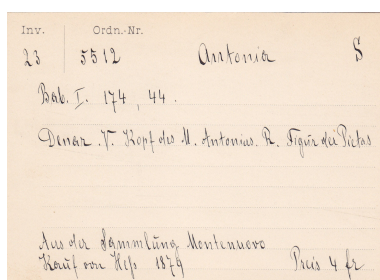 Inv. Ordn.-Nr.
23 5512 Antonia S
Bab. I. 174, 44.
Denar. V. Kopf des M. Antonius. R. Figur der Pietas
Aus der Sammlung Montenuovo
Kauf von Heß 1879 Preis 4 fr